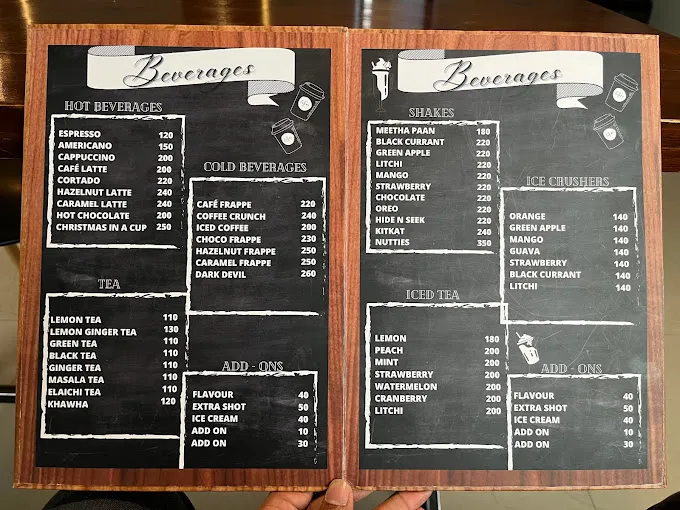 Beverages
HOT BEVERAGES
ESPRESSO 120
AMERICANO 150
CAPPUCCINO 200
CAFÉ LATTE 200
CORTADO 220
HAZELNUT LATTE 240
CARAMEL LATTE 240
HOT CHOCOLATE 200
CHRISTMAS IN A CUP 250
COLD BEVERAGES
CAFÉ FRAPPE 220
COFFEE CRUNCH 240
ICED COFFEE 200
CHOCO FRAPPE 230
HAZELNUT FRAPPE 250
CARAMEL FRAPPE 250
DARK DEVIL 260
TEA
LEMON TEA 110
LEMON GINGER TEA 130
GREEN TEA 110
BLACK TEA 110
GINGER TEA 110
MASALA TEA 110
ELAICHI TEA 110
KHAWHA 120
ADD - ONS
FLAVOUR 40
EXTRA SHOT 50
ICE CREAM 40
ADD ON 10
ADD ON 30
Beverages
SHAKES
MEETHA PAAN 180
BLACK CURRANT 220
GREEN APPLE 220
LITCHI 220
MANGO 220
STRAWBERRY 220
CHOCOLATE 220
OREO 220
HIDE N SEEK 220
KITKAT 240
NUTTIES 350
ICE CRUSHERS
ORANGE 140
GREEN APPLE 140
MANGO 140
GUAVA 140
STRAWBERRY 140
BLACK CURRANT 140
LITCHI 140
ICED TEA
LEMON 180
PEACH 200
MINT 200
STRAWBERRY 200
WATERMELON 200
CRANBERRY 200
LITCHI 200
ADD - ONS
FLAVOUR 40
EXTRA SHOT 50
ICE CREAM 40
ADD ON 10
ADD ON 30